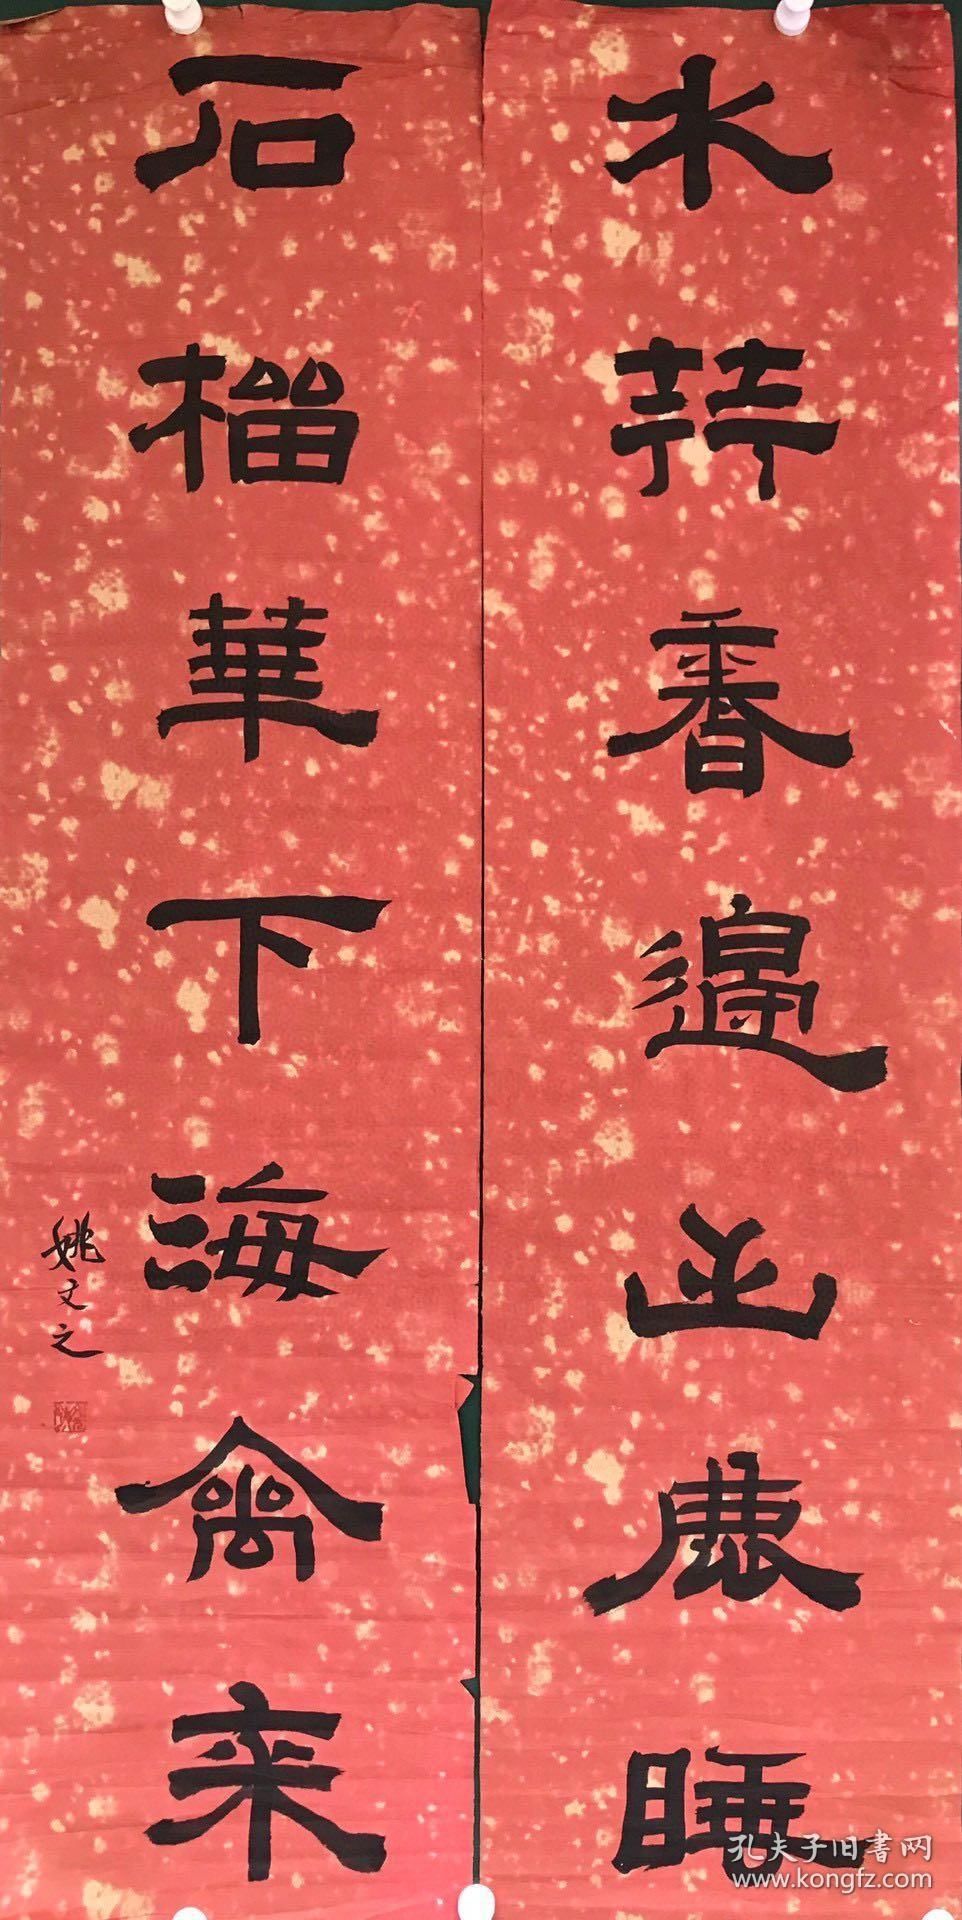 水荇香邊山鹿睡
石榴華下海禽來
姚文之
孔夫子旧書网
www.kongfz.com